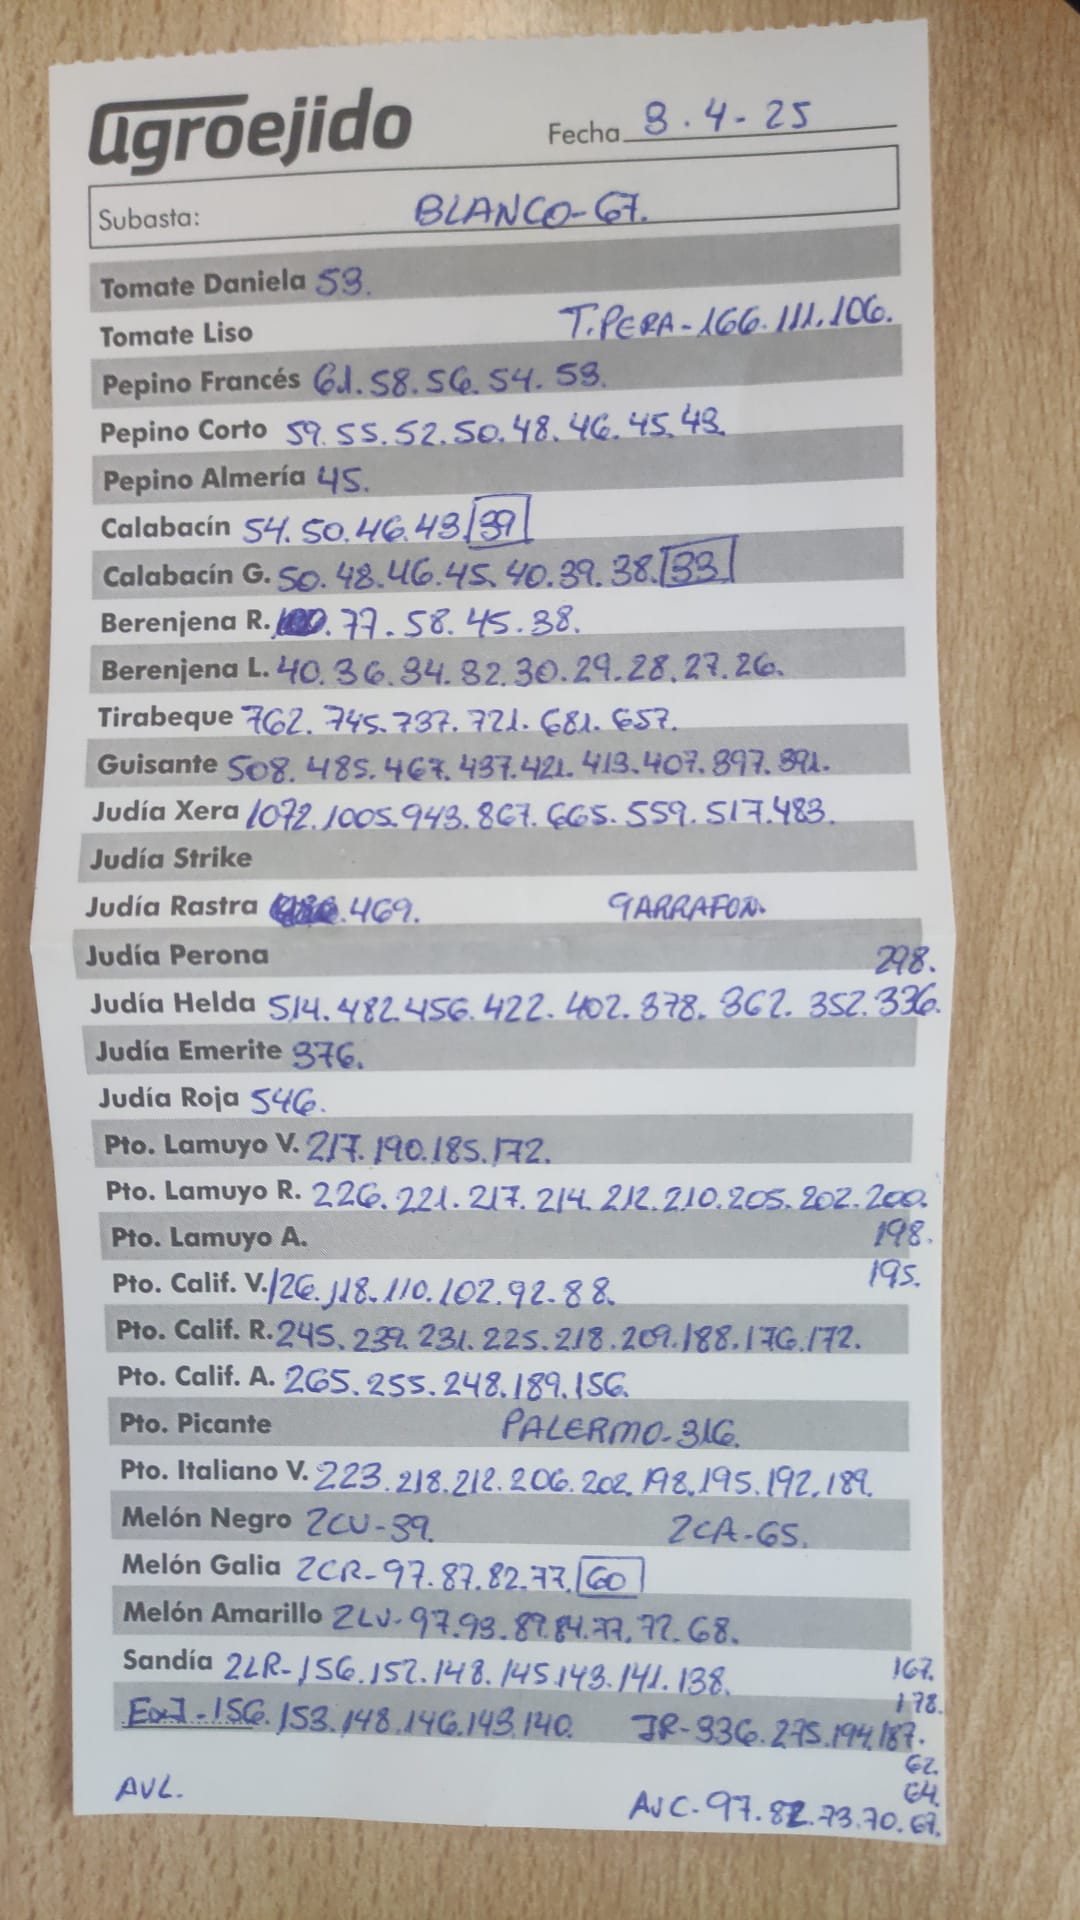 agroejido
Fecha 3.4-25
Subasta: BLANCO-67.
Tomate Daniela 53.
Tomate Liso T.PERA-166.111.106.
Pepino Francés 61.58.56.54.53.
Pepino Corto 59.55.52.50.48.46.45.43.
Pepino Almería 45.
Calabacín 54.50.46.43.39
Calabacín G. 50.48.46.45.40.39.38.33
Berenjena R. .77.58.45.38.
Berenjena L. 40.36.34.32.30.29.28.27.26.
Tirabeque 762.745.737.721.681.657.
Guisante 508.485.467.437.421.413.407.397.391.
Judía Xera 1072.1005.943.867.665.559.517.483.
Judía Strike
Judía Rastra .469. GARRAFON.
Judía Perona 298.
Judía Helda 514.482.456.422.402.378.362.352.336.
Judía Emerite 376.
Judía Roja 546.
Pto. Lamuyo V. 217.190.185.172.
Pto. Lamuyo R. 226.221.217.214.212.210.205.202.200.
Pto. Lamuyo A. 198.
Pto. Calif. V. 126.118.110.102.92.88. 195.
Pto. Calif. R. 245.239.231.225.218.209.188.176.172.
Pto. Calif. A. 265.255.248.189.156.
Pto. Picante PALERMO-316.
Pto. Italiano V. 223.218.212.206.202.198.195.192.189.
Melón Negro 2CU-39. 2CA-65.
Melón Galia 2CR-97.87.82.77.60
Melón Amarillo 2LV-97.93.89.84.77.72.68.
Sandía 2LR-156.152.148.145.143.141.138. 167.
178.
-156.153.148.146.143.140. JR-336.275.194.187.
62.
64.
AVL. AJC-97.82.73.70.67.